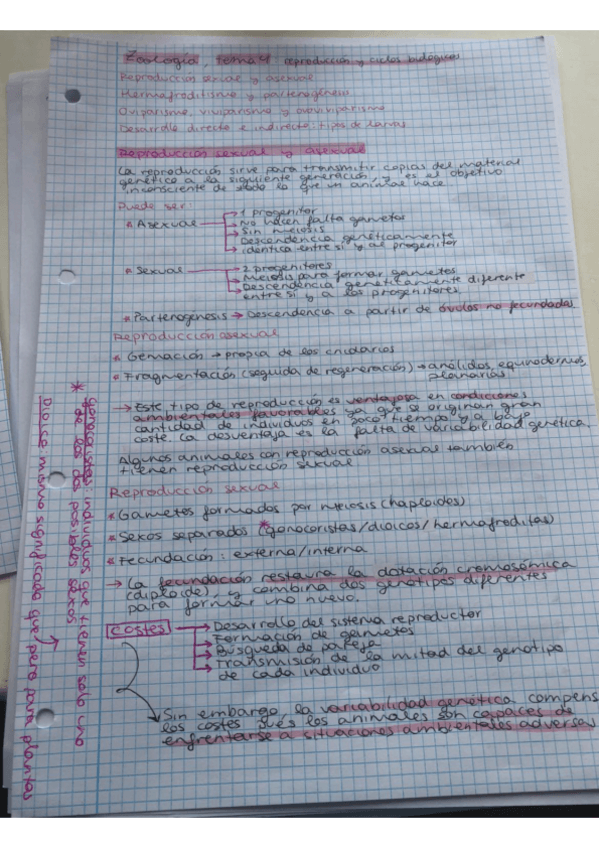 Zoología, tema 4 reproducción y ciclos biológicos
Reproducción sexual y asexual
Hermafroditismo y partenogénesis
Oviparismo, viviparismo y ovoviviparismo
Desarrollo directo e indirecto: tipos de larvas
Reproducción sexual y asexual
La reproducción sirve para transmitir copias del material
genético a la siguiente generación, y es el objetivo
inconsciente de todo lo que un animal hace.
Puede ser:
* Asexual → 1 progenitor
→ No hacen falta gametos
→ Sin meiosis
→ Descendencia genéticamente
idéntica entre si y al progenitor
* Sexual → 2 progenitores
→ Meiosis para formar gametos
→ Descendencia genéticamente diferente
entre si y a los progenitores
* Partenogénesis → Descendencia a partir de óvulos no fecundados
Reproducción asexual
* Gemación → propia de los cnidarios
* Fragmentación (seguida de regeneración) → anélidos, equinodermos,
planarias
→ Este tipo de reproducción es ventajosa en condiciones
ambientales favorables ya que se originan gran
cantidad de individuos en poco tiempo y a bajo
coste. La desventaja es la falta de variabilidad genética.
Algunos animales con reproducción asexual también
tienen reproducción sexual
Reproducción sexual
* Gametos formados por meiosis (haploides)
* Sexos separados (*gonocoristas/dioicos/hermafroditas)
* Fecundación: externa/interna
→ La fecundación restaura la dotación cromosómica
(diploide), y combina dos genotipos diferentes
para formar uno nuevo.
Costes → Desarrollo del sistema reproductor
→ Formación de gametos
→ Búsqueda de pareja
→ Transmisión de la mitad del genotipo
de cada individuo
Sin embargo, la variabilidad genética compens
los costes pués los animales son capaces de
enfrentarse a situaciones ambientales adversas
* Gonocoristas: individuos que tienen solo uno
de los dos posibles sexos
Dioico mismo significado que, pero para plantas